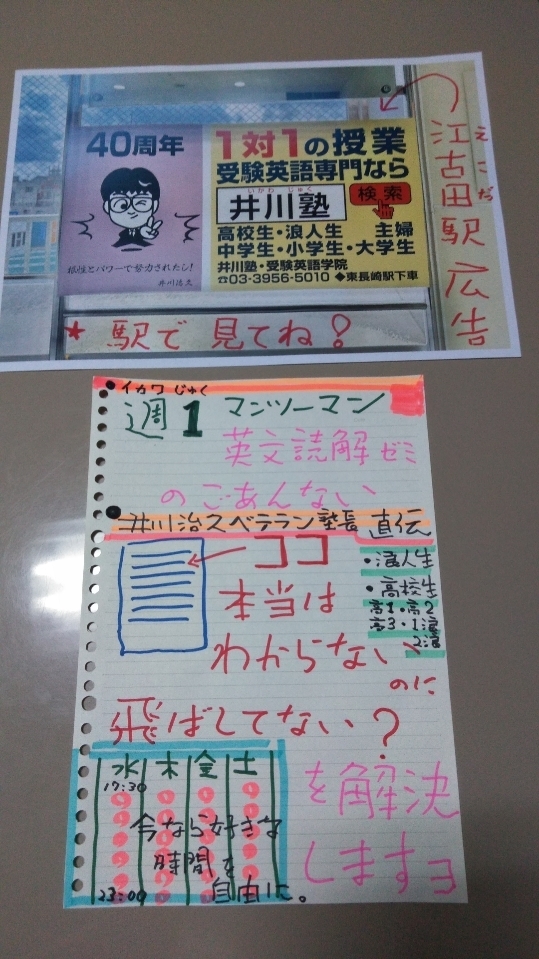 40周年
根性とパワーで努力されたし!
井川治久
1対1の授業
受験英語専門なら
いかわ じゅく
井川塾
検索
高校生・浪人生 主婦
中学生・小学生・大学生
井川塾・受験英語学院
☎03-3956-5010 ◆東長崎駅下車
えこだ
江古田駅 広告
★ 駅で見てね!
イカワじゅく
週1 マンツーマン
英文読解ゼミ
のごあんない
井川治久ベテラン塾長 直伝
ココ
本当は
わからない
のに
飛ばしてない?
・浪人生
・高校生
高1・高2
高3・1浪
2浪
水 木 金 土
17:30
今なら好きな
時間を
自由に。
23:00
を解決
しますョ